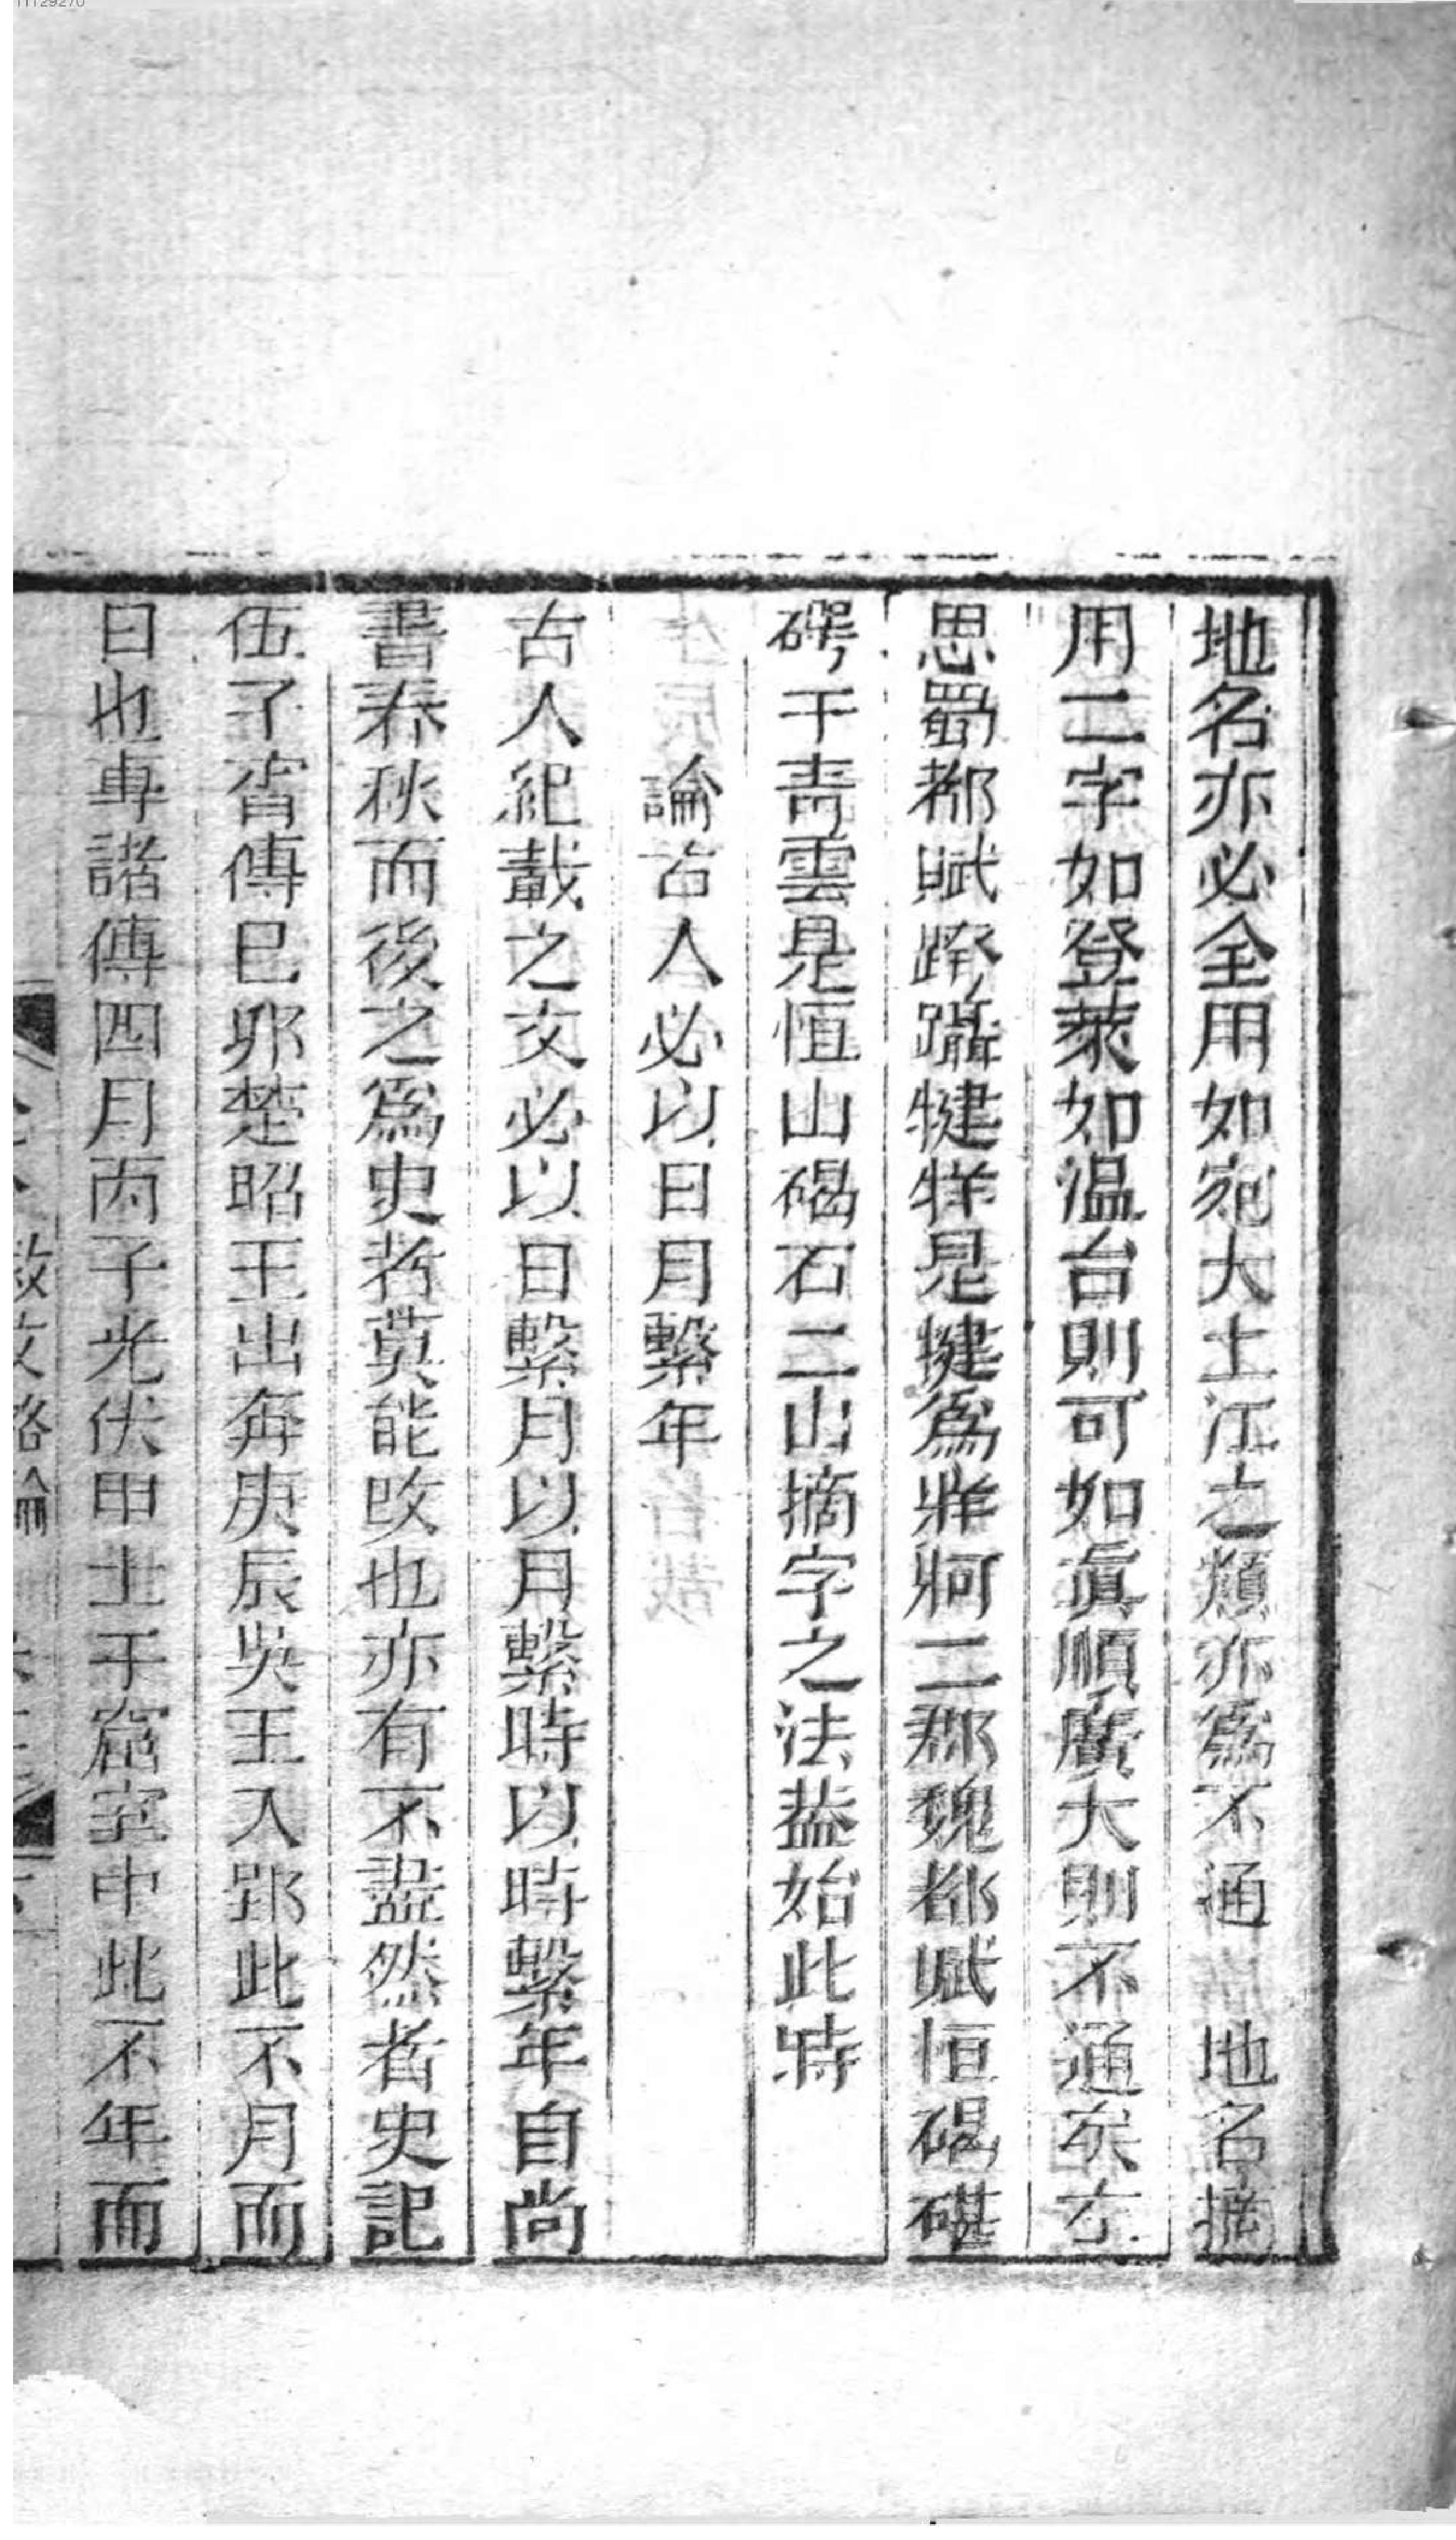 地名亦必全用如宛大土江之類亦爲不通　地名摘
用二字如登萊如溫台則可如眞順廣大則不通矣左
思蜀都賦跨躡犍牂是犍爲牂牁二郡魏都賦恒碣碪
碍于青雲是恒山碣石二山摘字之法葢始此時
論古人必以日月繫年
古人紀載之文必以日繫月以月繫時以時繫年自尚
書春秋而後之爲史者莫能改也亦有不盡然者史記
伍子胥傳巳夘楚昭王出奔庚辰吳王入郢此不月而
日也專諸傳四月丙子光伏甲士于窟室中此不年而
救文格論